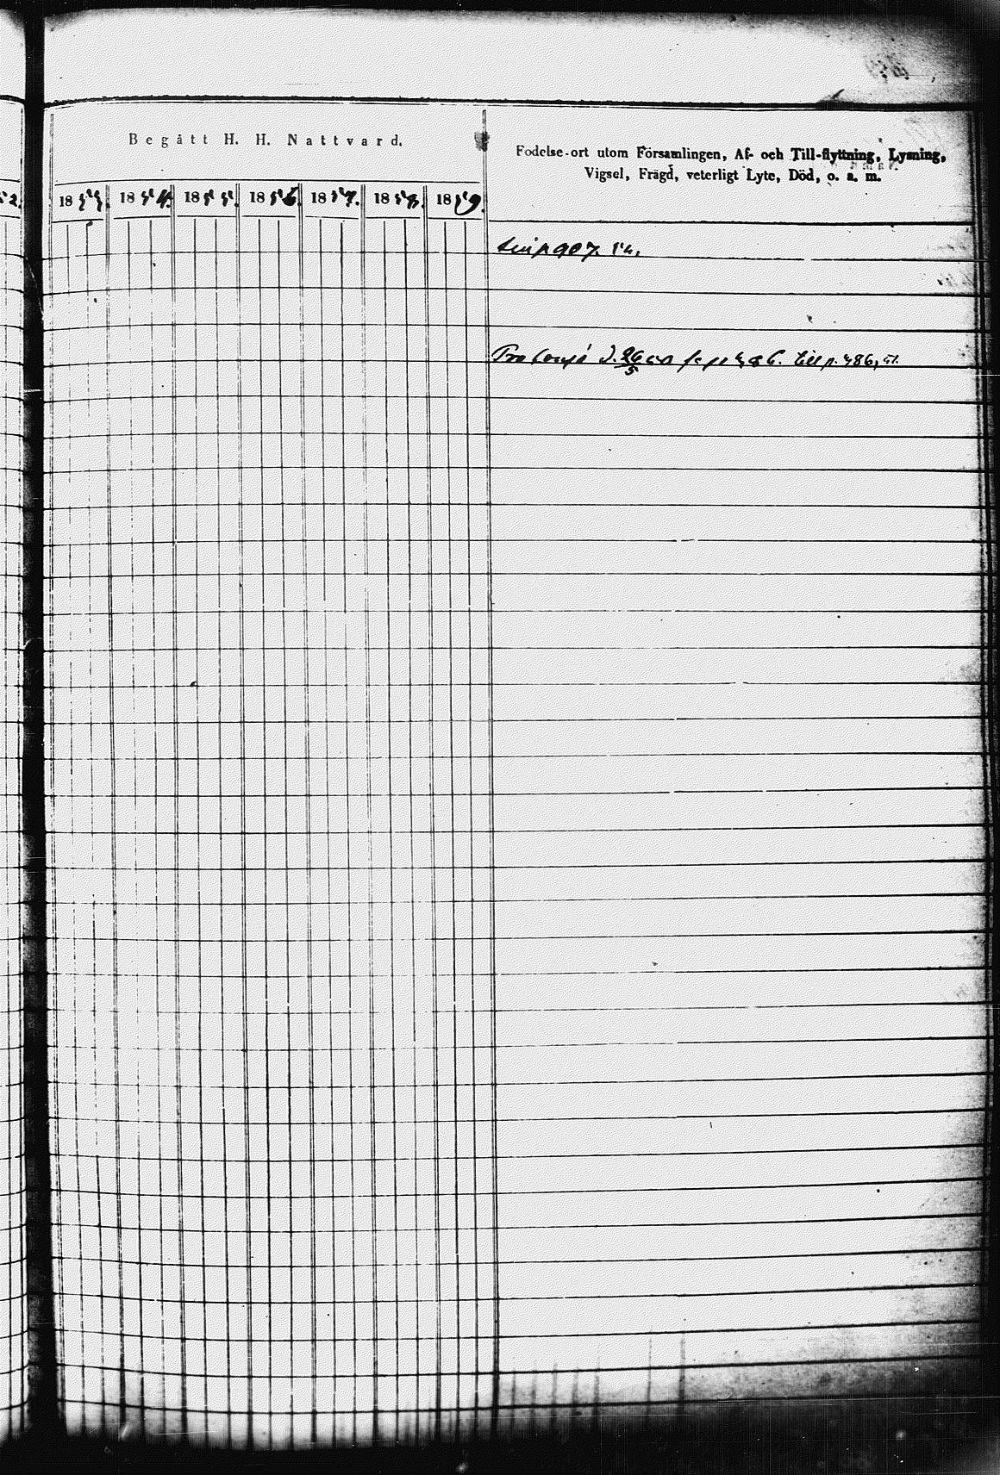 Begått H. H. Nattvard.
Fodelse-ort utom Församlingen, Af- och Till-flyttning, Lysning,
Vigsel, Frägd, veterligt Lyte, Död, o. a. m.
52. 1853. 1854. 1855. 1856. 1857. 1858. 1859.
p. 907. 54.
d. 26/5 till p. 486, 51.